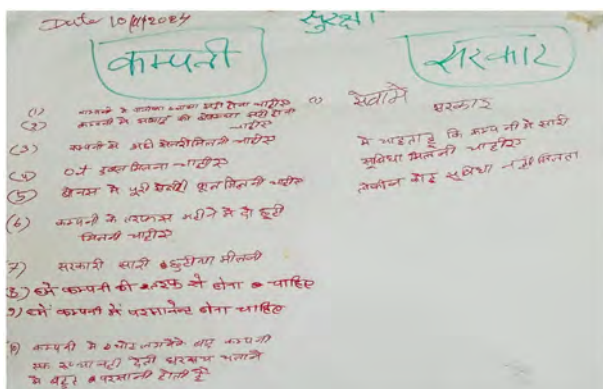 Date 10/11/2024
सुरक्षा
कम्पनी
सरकार
(1) चाहीए
(2) कम्पनी मे सफाई की सही होनी
चाहीए
(3) कम्पनी मे अच्छी सैलरी मिलनी चाहीए
(4) OT डबल मिलना चाहीए
(5) बोनस मे पूरी सैलरी मिलनी चाहीए
(6) कम्पनी के तरफ से महीने मे दो छुटी
मिलनी चाहीए
7) सरकारी सारी छुटीया मीलनी
8) हमें कम्पनी की तरफ से होना चाहिए
9) हमें कम्पनी में परमानेन्ट होना चाहिए
कम्पनी मे चोट लगने के बाद कम्पनी
एक रूपया नही देती घर खर्च चलाने
मे बहुत परेसानी होती है
(1) सेवामे
सरकार
मे चाहता हूँ कि कम्पनी मे सारी
सुविधा मिलनी चाहीए
लेकीन कोई सुविधा नही मिलता